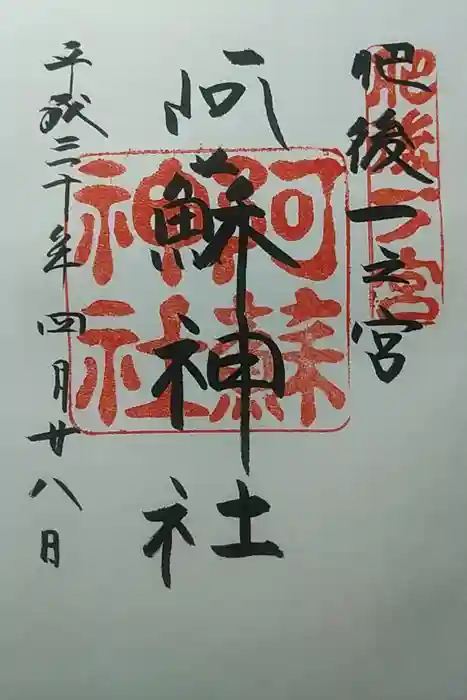 肥後一之宮
肥後一宮
阿蘇神社
阿蘇
神社
平成三十年四月廿八日